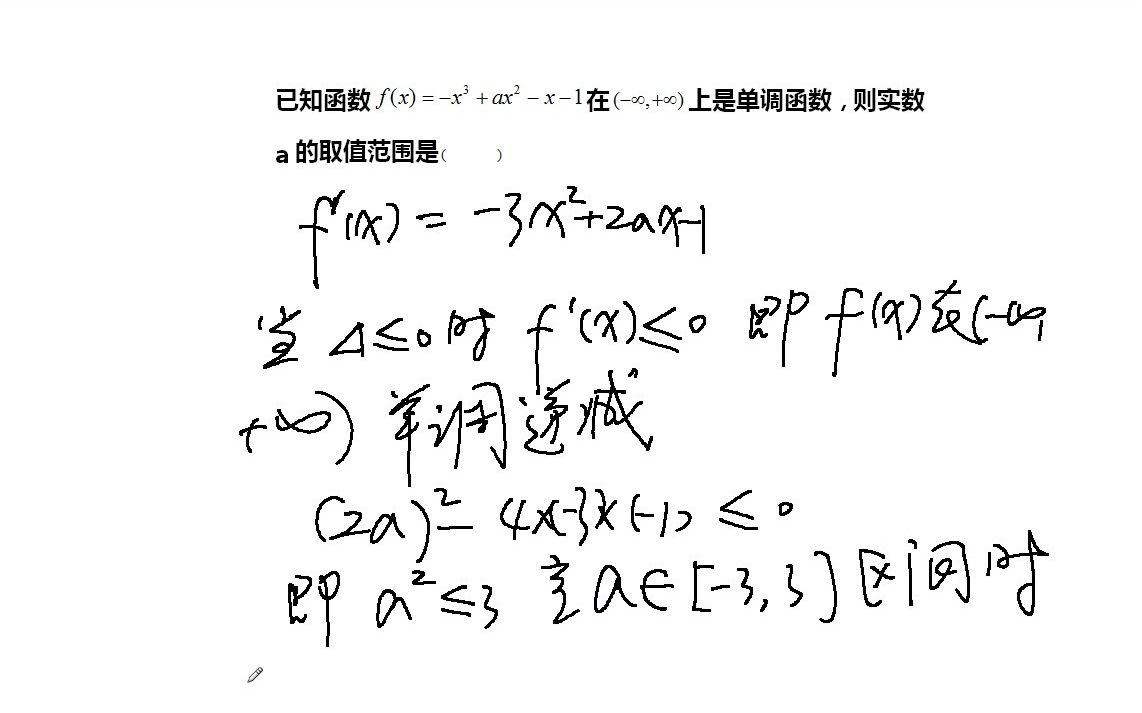 已知函数 f(x) = -x³ + ax² - x - 1在(-∞,+∞)上是单调函数，则实数
a 的取值范围是（ ）
f'(x) = -3x²+2ax-1
当 Δ≤0时 f'(x)≤0 即 f(x)在(-∞,
+∞) 单调递减
(2a)² - 4×(-3)×(-1) ≤ 0
即 a² ≤3 a∈[-3,3]区间时